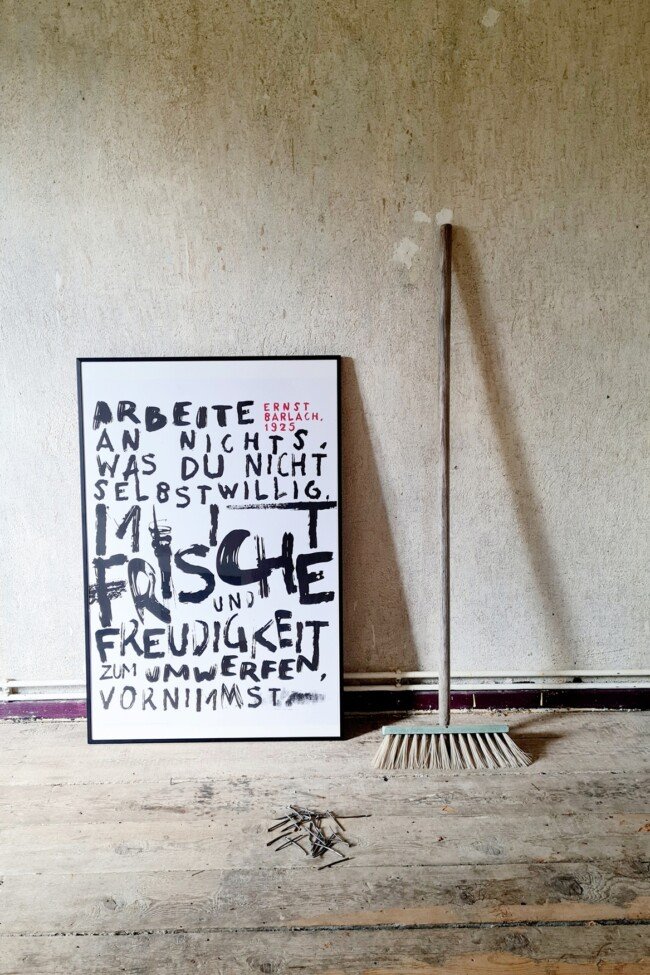 ARBEITE
ERNST
BARLACH,
1925
AN NICHTS,
WAS DU NICHT
SELBSTWILLIG,
MIT
FRISCHE
UND
FREUDIGKEIT
ZUM UMWERFEN,
VORNIMMST